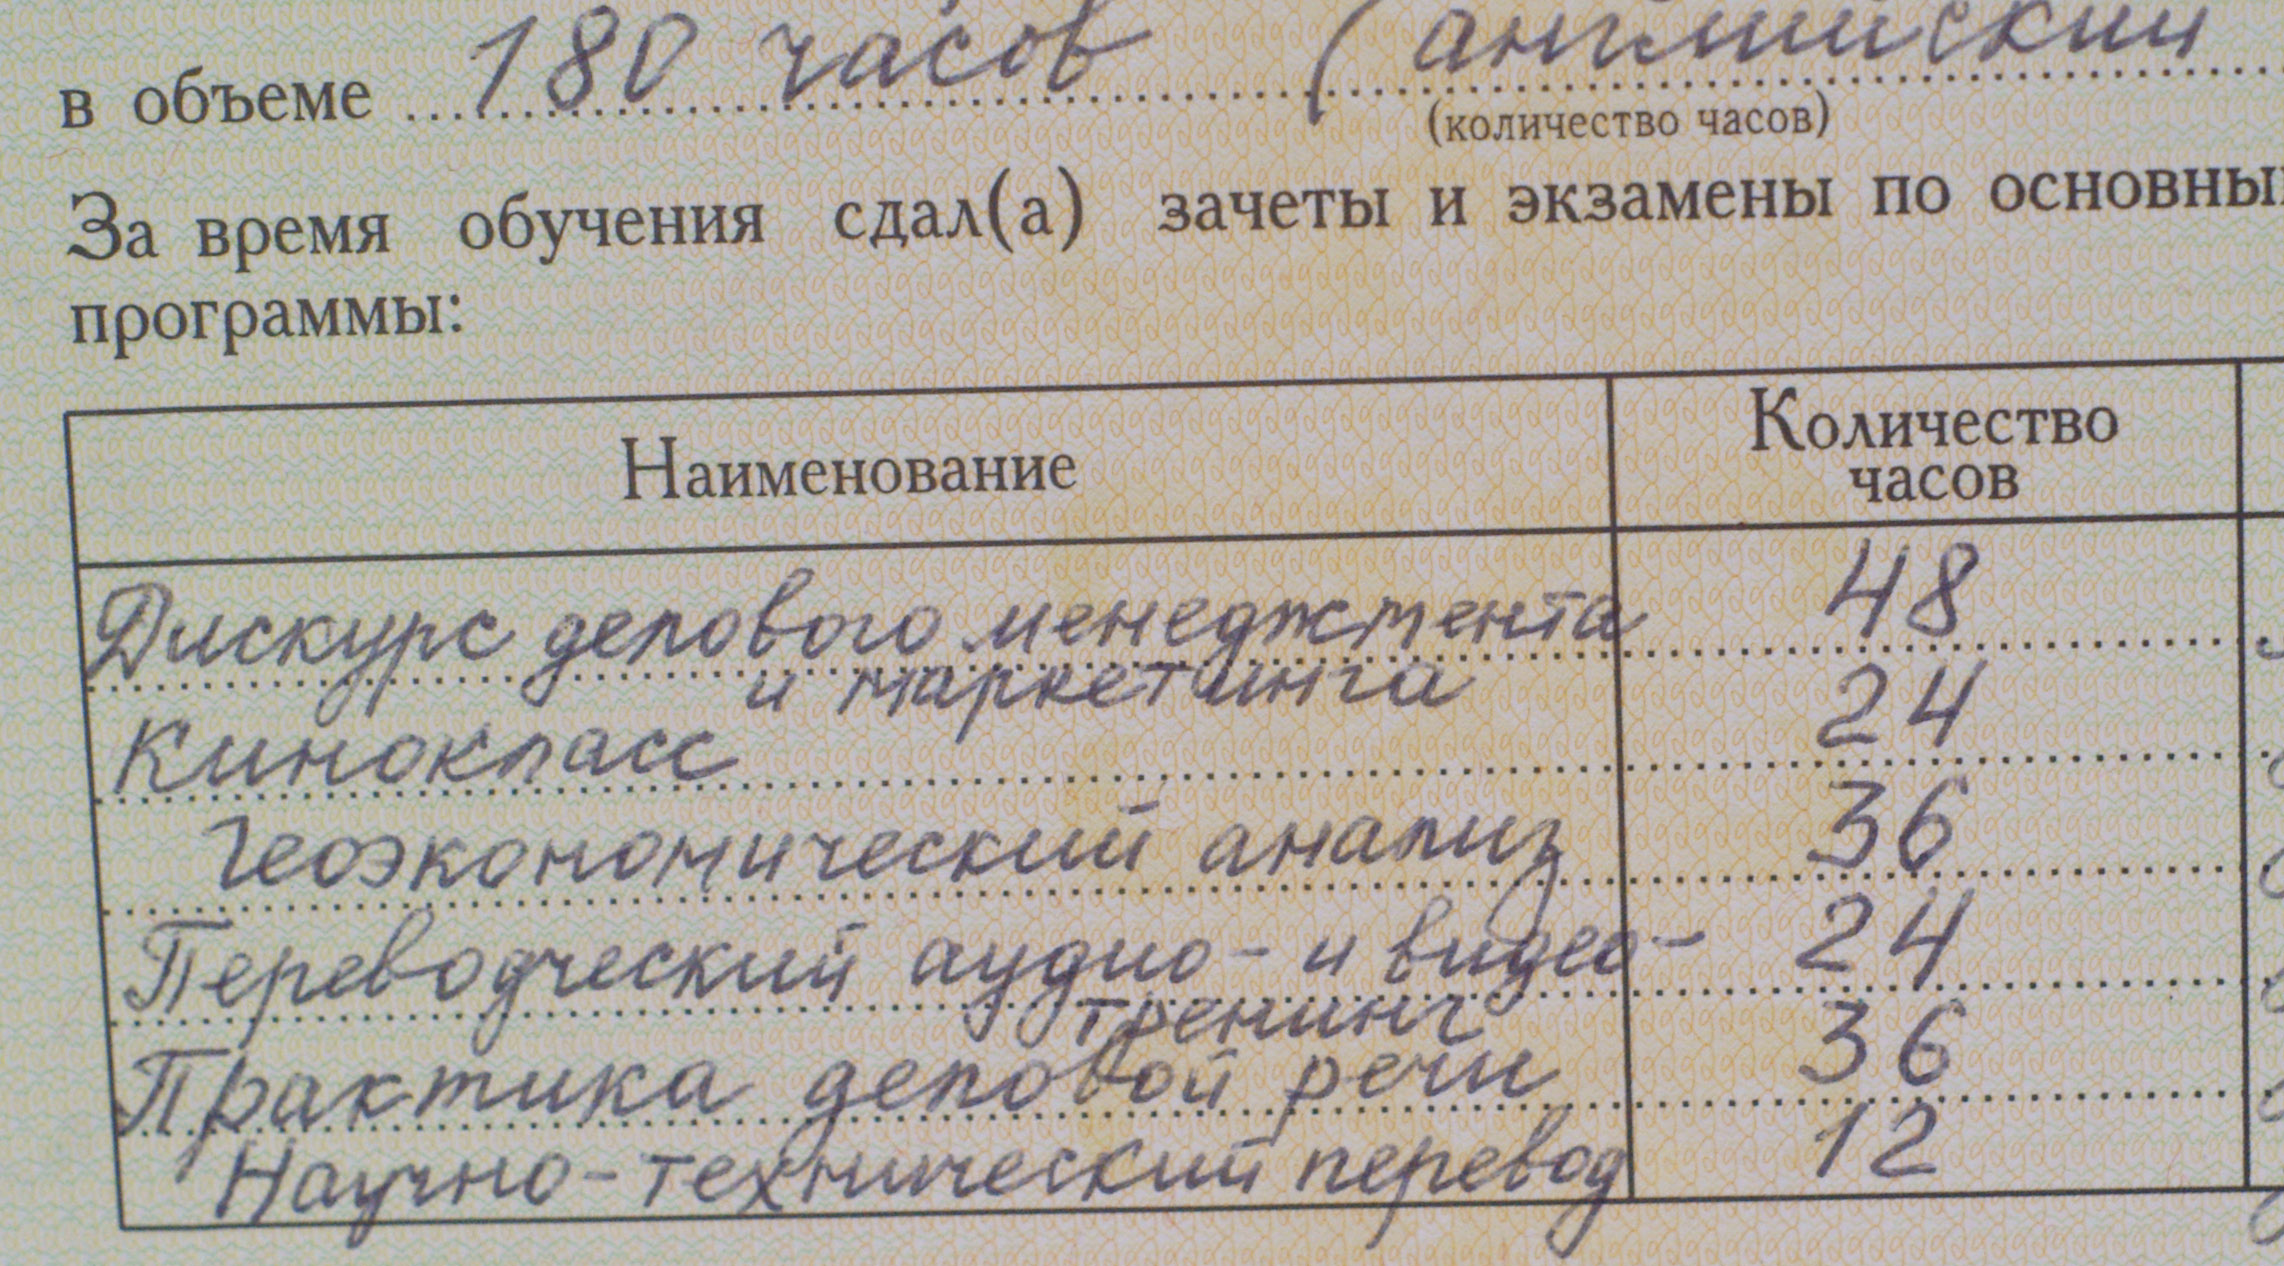 в объеме 180 часов (английский
(количество часов)
За время обучения сдал(а) зачеты и экзамены по основны
программы:
Наименование Количество
часов
Дискурс делового менеджмента 48
и маркетинга
Кинокласс 24
Геоэкономический анализ 36
Переводческий аудио- и видео- 24
тренинг
Практика деловой речи 36
Научно-технический перевод 12